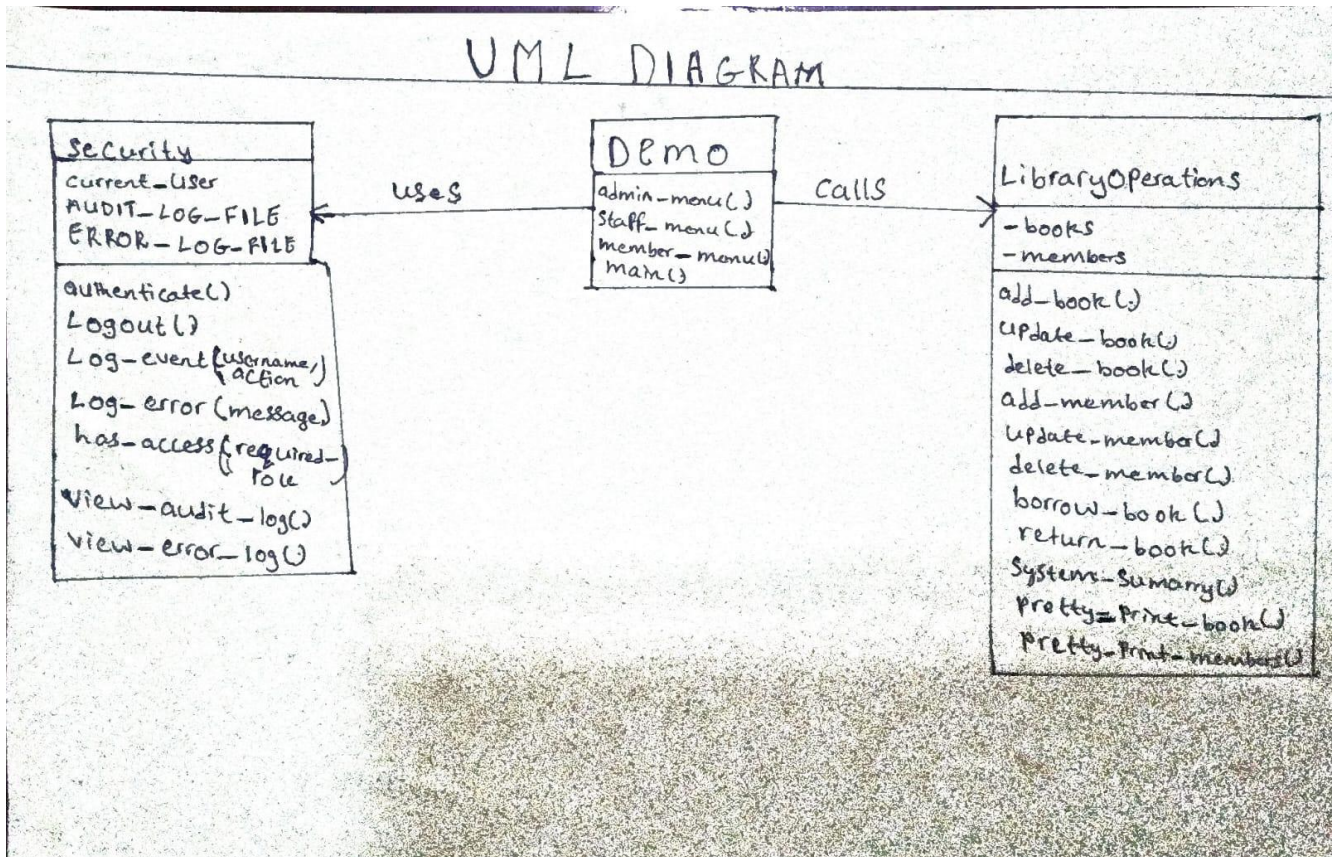 UML DIAGRAM
Security
current_user
AUDIT_LOG_FILE
ERROR_LOG_FILE
authenticate()
Logout()
Log_event(username,
action)
Log_error(message)
has_access(required_
role)
View_audit_log()
view_error_log()
uses
Demo
admin_menu()
Staff_menu()
member_menu()
main()
calls
LibraryOperations
- books
- members
add_book()
update_book()
delete_book()
add_member()
update_member()
delete_member()
borrow_book()
return_book()
System_Sumarry()
pretty_print_book()
pretty_print_members()